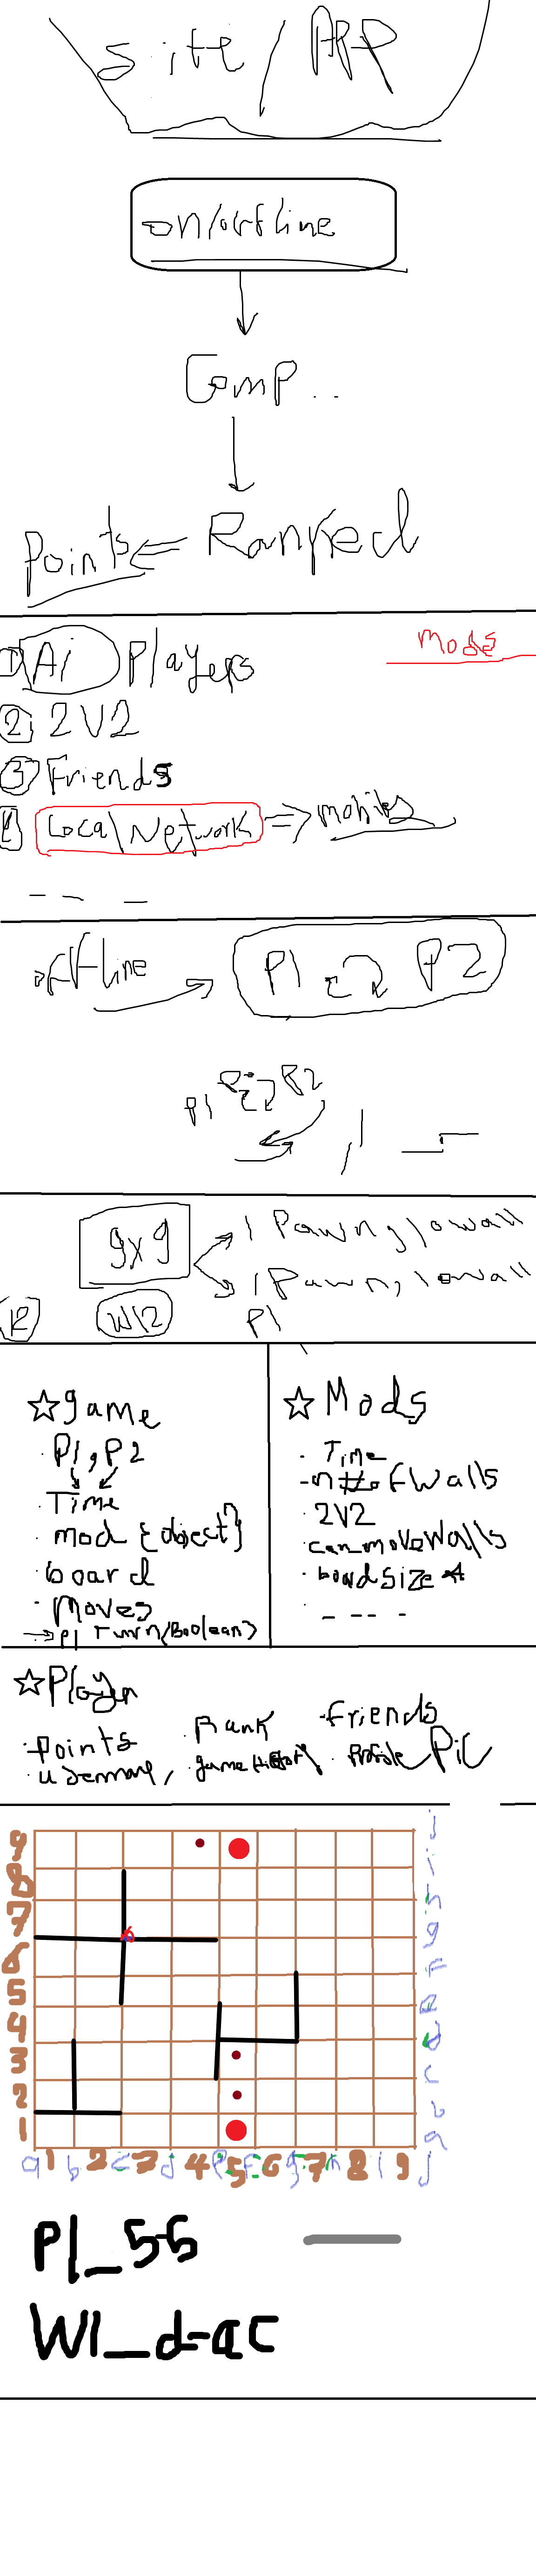 site / APP
on/offline
Comp..
Points ⇐ Ranked
Mode
① Ai Players
② 2V2
③ Friends
Local Network => mobiles
offline → P1 P2
P1 P2
9x9
1 Pawn, 10wall
1 Pawn, 10wall
W12
P1
☆ game
· P1, P2
· Time
· mod {object}
· board
· Moves
→ P1 Turn (Boolean)
☆ Mods
- Time
- n# of walls
· 2V2
· can_move walls
· board size
- - - -
☆ Player
· Points
· Rank
· friends
· username,
· game History
· Profile Pic
9 j
8 i
7 h
6 g
5 f
4 e
3 d
2 c
1 b
a
a 1 b 2 c 3 d 4 e 5 f 6 g 7 h 8 i 9 j
P1_5-6
W1_d-ac